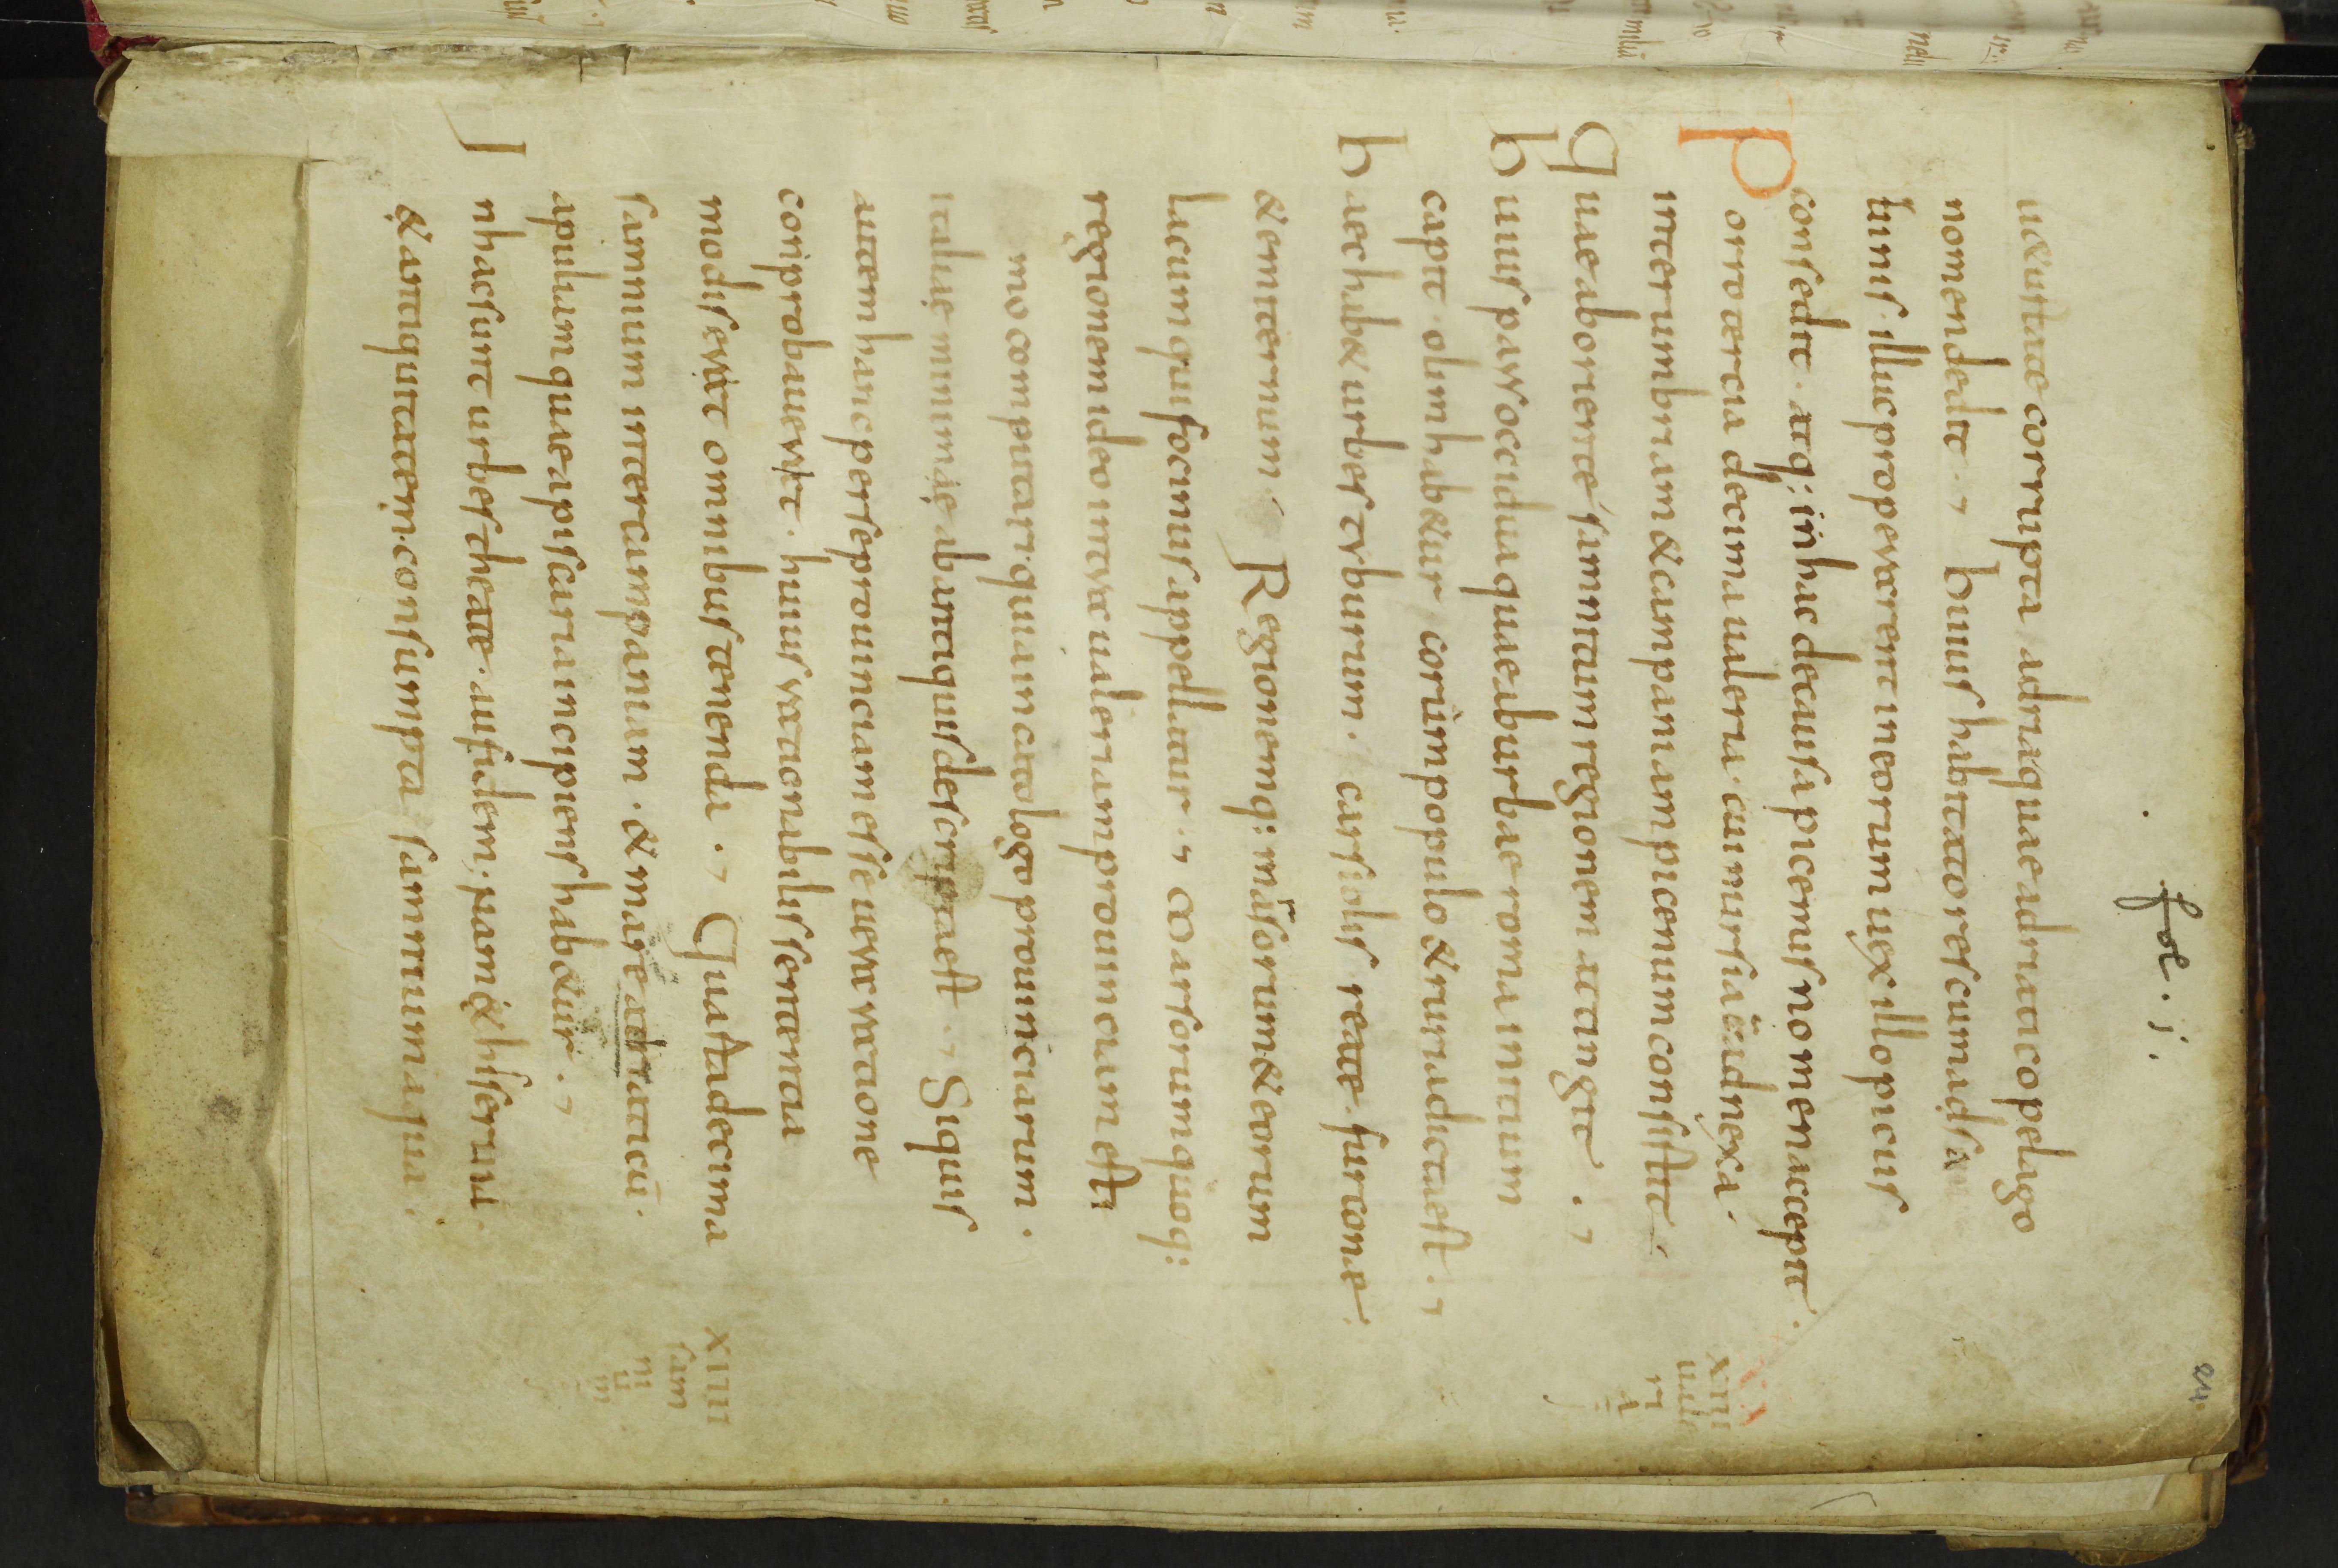 foł. j.
24.
uetustate corrupta adriaquae adriatico pelago
nomen dedit. huius habitatores cum ad sa
binis illuc properarent in eorum uexillo picus
consedit. atq; in hac de causa picenus nomen accepit.
Porro tertia decima ualeria. cui nursia ē adnexa.
inter umbriam & campaniam picenumconsistit.
Quae ab oriente samnitum regionem attangit.
Huius pars occidua quae ab urbae roma initium
capit. olim habetur corum populo etruria dicta est.
Haec habet urbes tyburium. carsiolis reate. furcone.
& emiternum. Regionemq; marsorum & eorum
lacum qui focinus appellatur. Marsorum quoq;
regionem ideo intra ualeriam prouinciam esti
mo computari. quia in catalogo prouinciarum.
italiae minimae ab antiquis descripta est. Siquis
autem hanc per se prouinciam esse uera ratione
conprobauerit. huius rationabilis sententia
modis erit omnibus tenenda. Quarta decima
samnium inter campaniam. & mare adriaticū.
apuliam quae a piscaria incipiens habetur.
In hac sunt urbes theate. aufidem. panie hisernia.
& antiquitatem. consumpta samnium a qua.
XIII
uale
ri
a
XIIII
sam
ni
u
m